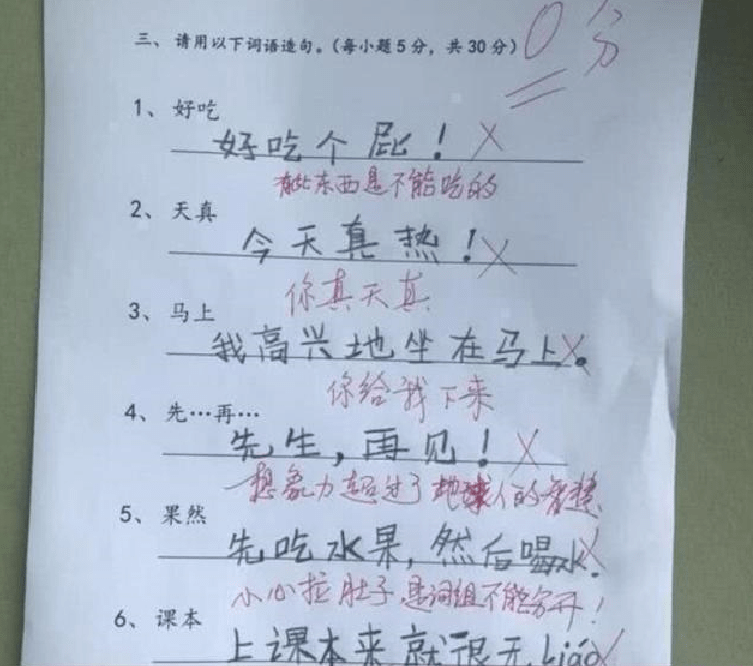 三、请用以下词语造句。(每小题5分，共30分) 0分
1、好吃
好吃个屁！
有些东西是不能吃的
2、天真
今天真热！
你真天真
3、马上
我高兴地坐在马上。
你给我下来
4、先…再…
先生，再见！
想象力超过了地球人的智慧
5、果然
先吃水果，然后喝水.
小心拉肚子.是词组不能分开！
6、课本
上课本来就很无liáo